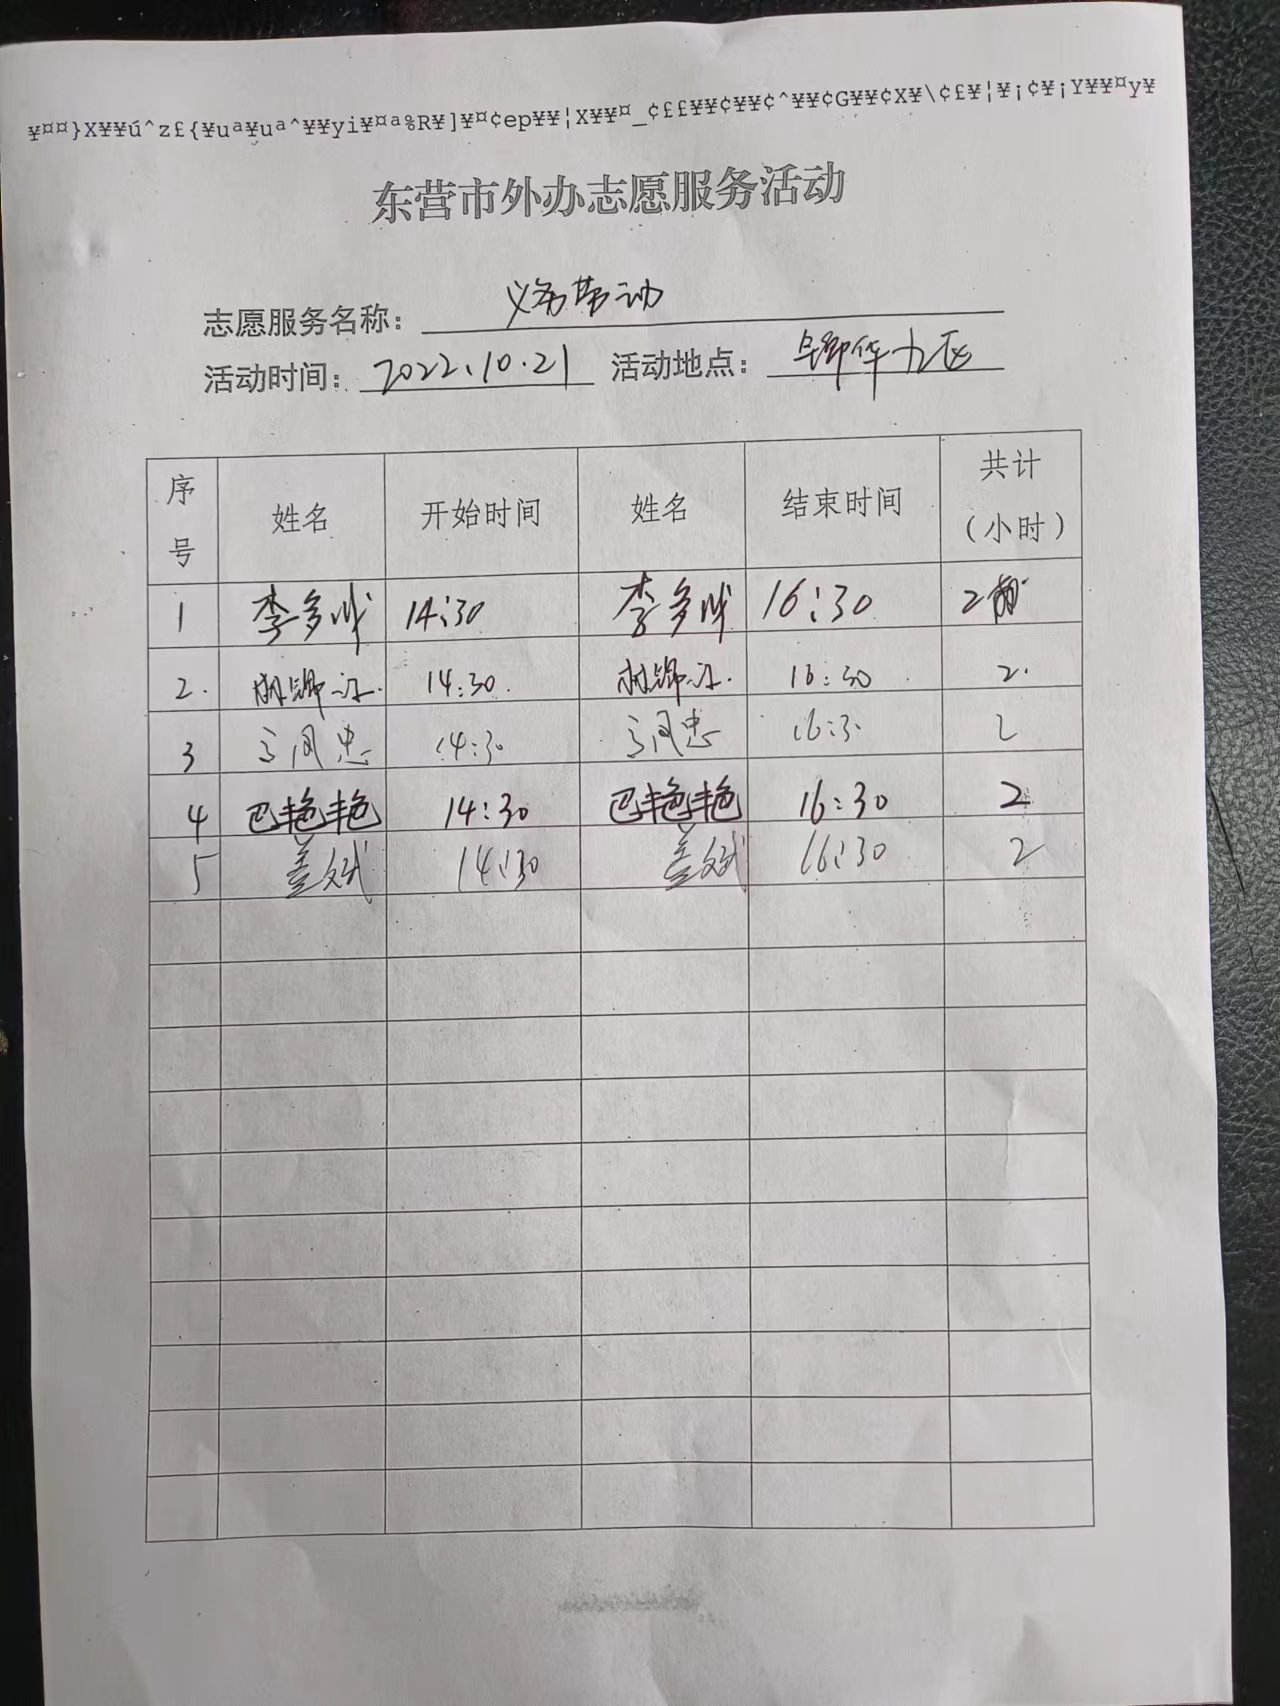 ¥¤¤}X¥¥ú^z£{¥uª¥uª^¥¥yi¥¤ª%R¥]¥¤¢ep¥¥¦X¥¥¤_¢££¥¥¢¥¥¢^¥¥¢G¥¥¢X¥\¢£¥¦¥¡¢¥¡Y¥¥¤y¥
东营市外办志愿服务活动
志愿服务名称： 义务劳动
活动时间： 2022.10.21 活动地点：
序号 姓名 开始时间 姓名 结束时间 共计（小时）
1 李多 14:30 李多 16:30 2
2. 14:30. 16:30 2.
3 忠 14:30 忠 16:3 2
4 巴艳艳 14:30 巴艳艳 16:30 2
5 14:30 16:30 2